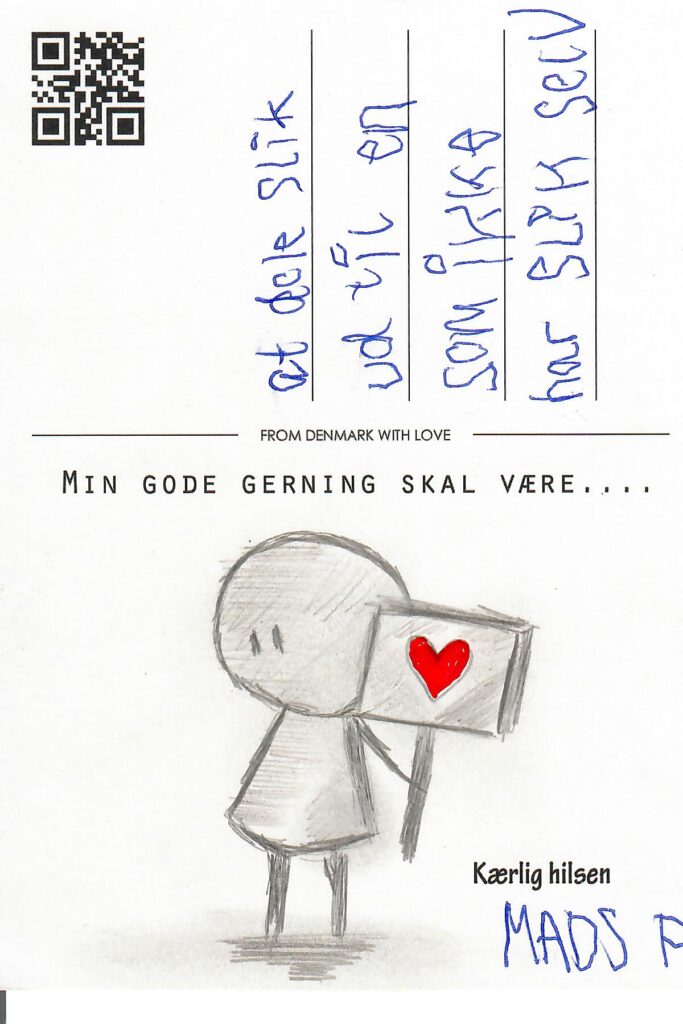 at dele slik
ud til en
som ikke
har slik selv
FROM DENMARK WITH LOVE
MIN GODE GERNING SKAL VÆRE....
Kærlig hilsen
MADS F